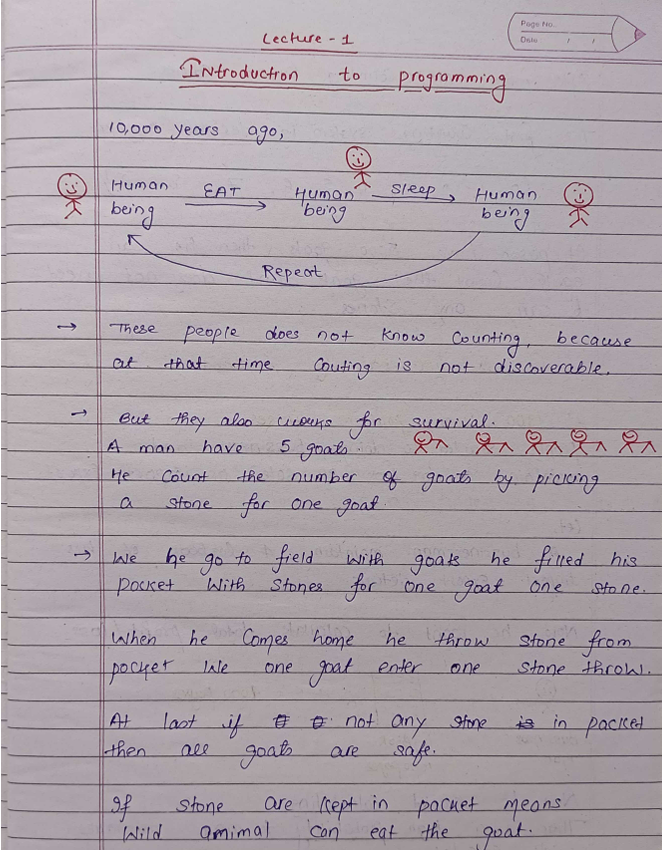 Page No.
Date / /
Lecture - 1
INtroduction to programming
10,000 years ago,
Human being EAT Human being Sleep Human being
Repeat
→ These people does not know Counting, because
at that time Couting is not discoverable.
→ But they also works for survival.
A man have 5 goats.
He Count the number of goats by picking
a stone for one goat.
→ We he go to field with goats he filled his
pocket With Stones for one goat one stone.
When he Comes home he throw stone from
pocket We one goat enter one stone throw.
At last if not any stone is in packet
then all goats are safe.
If stone are kept in packet means
Wild amimal can eat the goat.